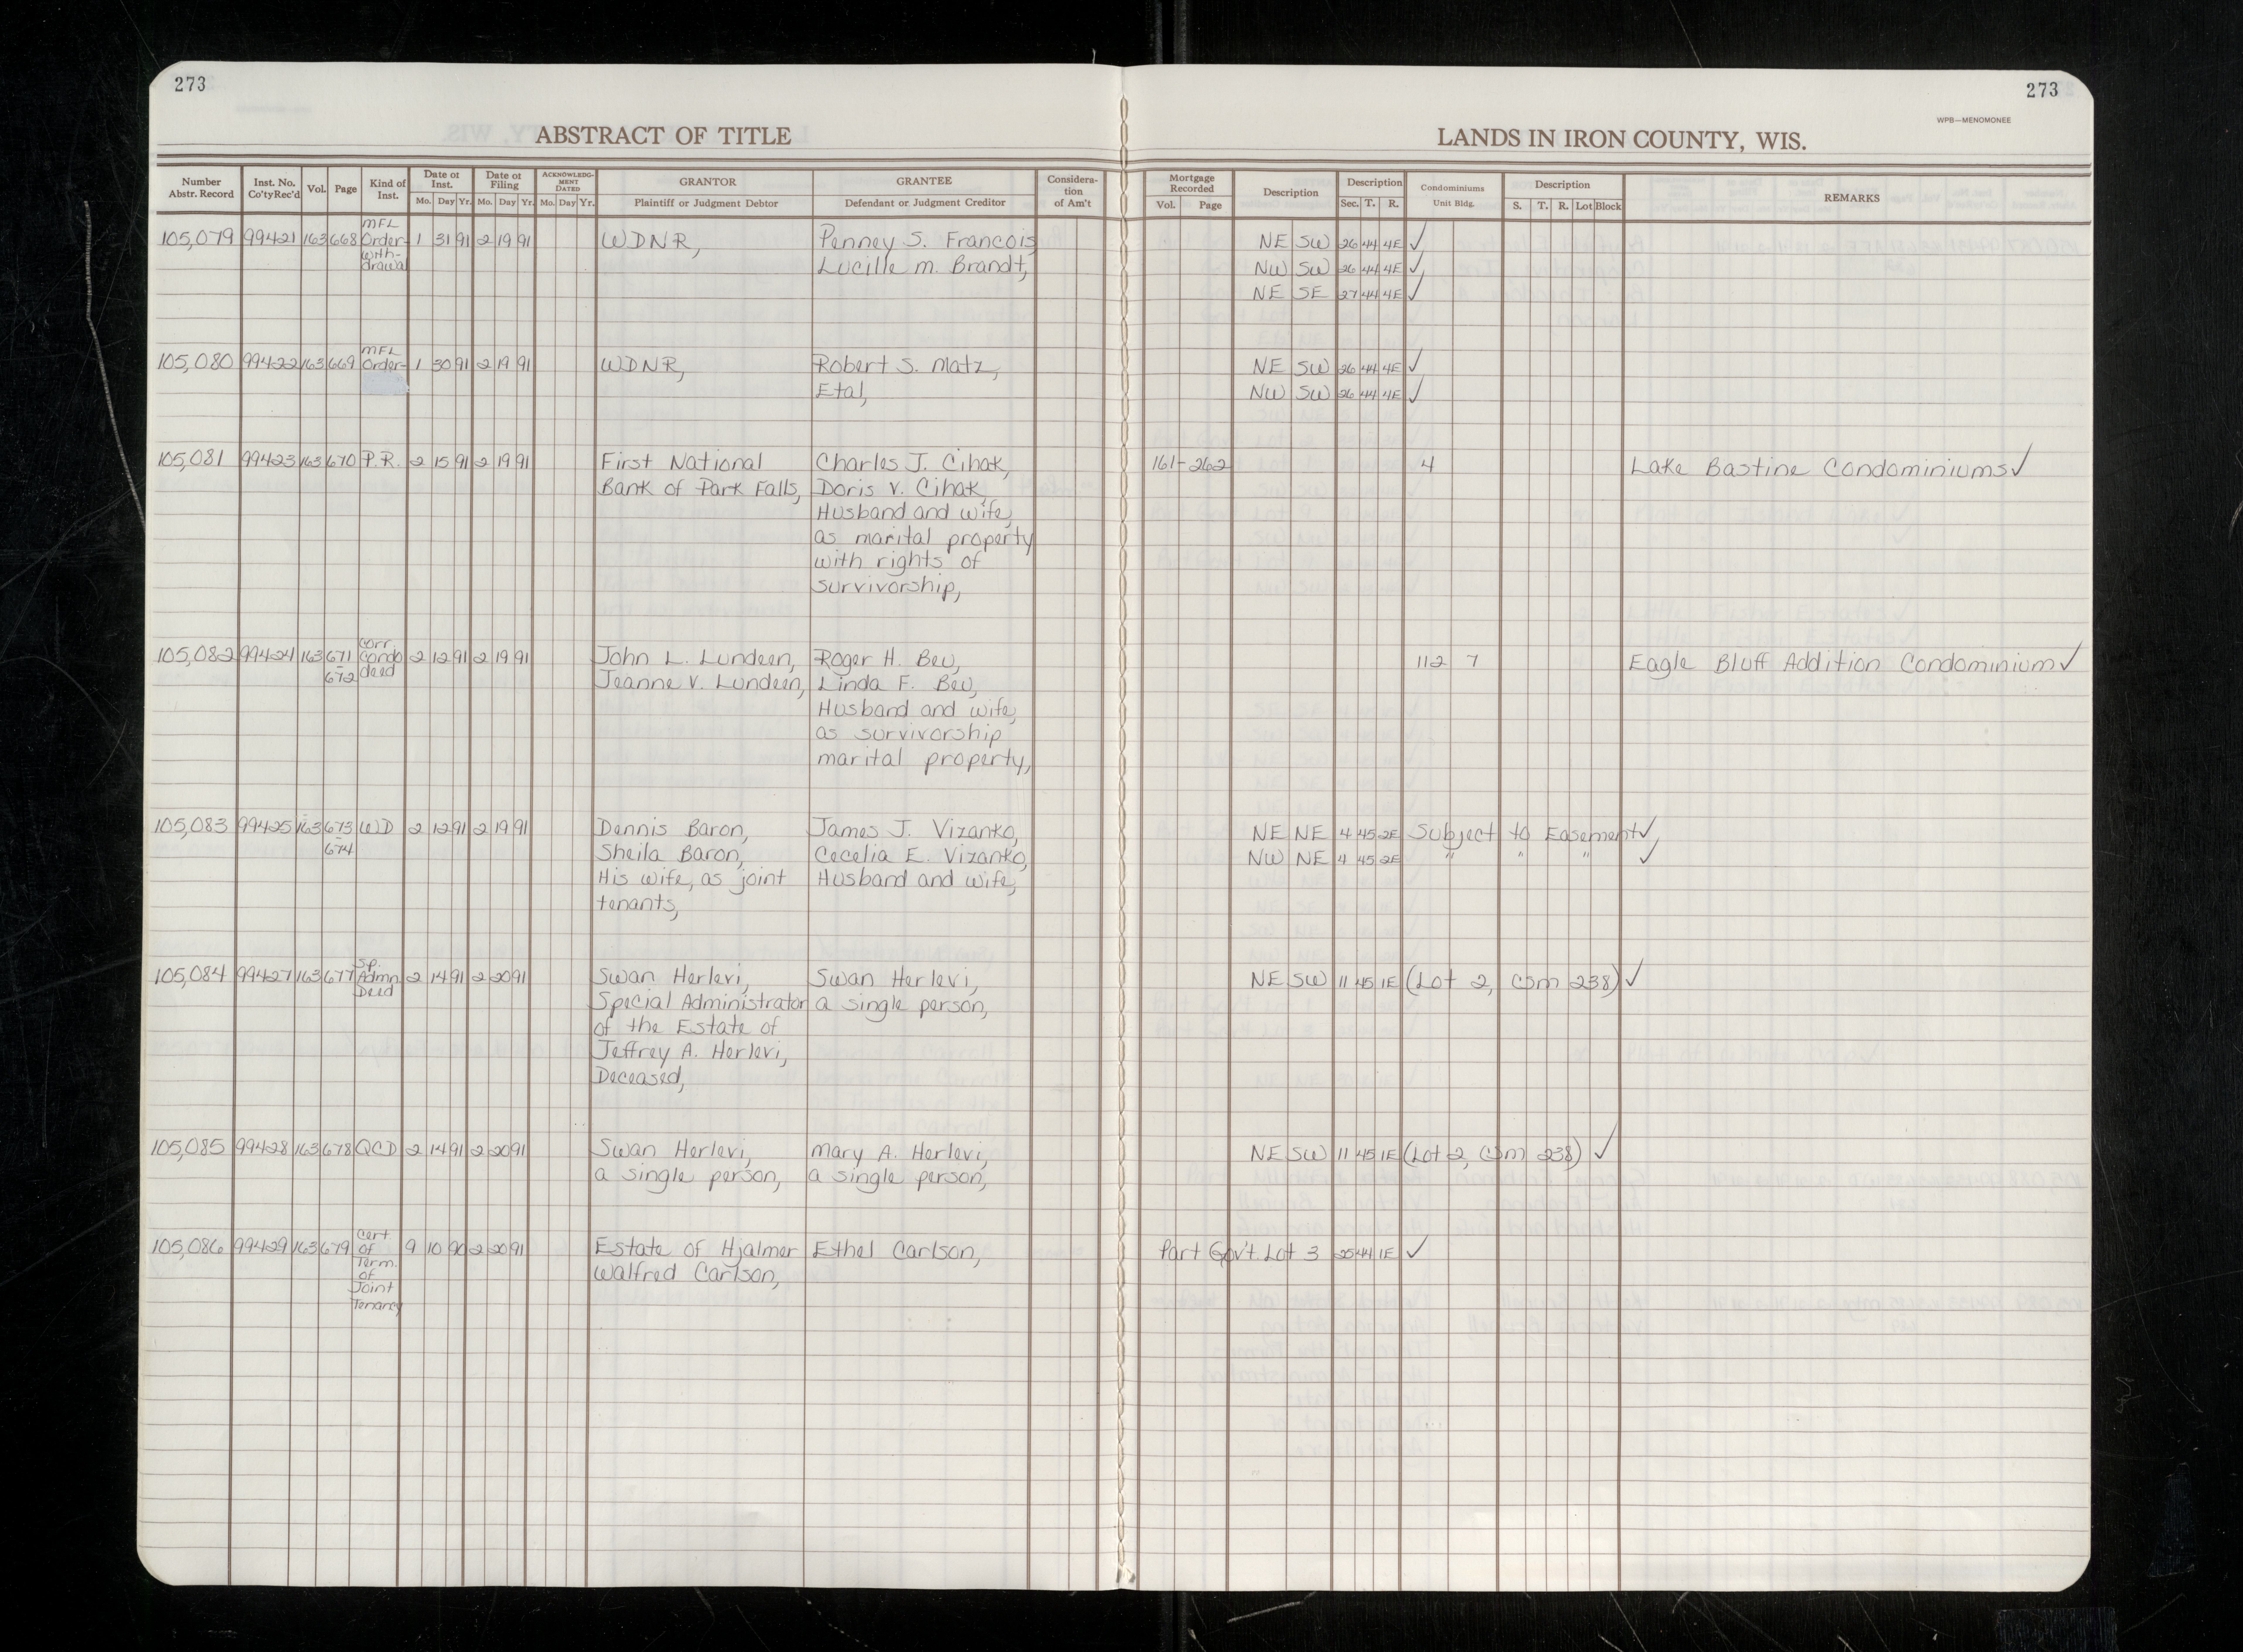 273
273
WPB—MENOMONEE
ABSTRACT OF TITLE
LANDS IN IRON COUNTY, WIS.
Number Abstr. Record | Inst. No. Co'ty Rec'd | Vol. | Page | Kind of Inst. | Date of Inst. Mo. Day Yr. | Date of Filing Mo. Day Yr. | ACKNOWLEDGMENT DATED Mo. Day Yr. | GRANTOR Plaintiff or Judgment Debtor | GRANTEE Defendant or Judgment Creditor | Consideration of Am't | Mortgage Recorded Vol. Page | Description | Description Sec. T. R. | Condominiums Unit Bldg. | Description S. T. R. Lot Block | REMARKS
MFL
105,079 99421 163 668 Order- 1 31 91 2 19 91 WDNR, Penney S. Francois, NE SW 26 44 4E ✓
with-drawal Lucille M. Brandt, NW SW 26 44 4E ✓
NE SE 27 44 4E ✓
MFL
105,080 99422 163 669 Order- 1 30 91 2 19 91 WDNR, Robert S. Matz, NE SW 26 44 4E ✓
Etal, NW SW 26 44 4E ✓
105,081 99423 163 670 P.R. 2 15 91 2 19 91 First National Charles J. Cihak, 161-262 4 Lake Bastine Condominiums ✓
Bank of Park Falls, Doris V. Cihak,
Husband and wife,
as marital property
with rights of
survivorship,
Corr.
105,082 99424 163 671 Condo 2 12 91 2 19 91 John L. Lundeen, Roger H. Beu, 112 7 Eagle Bluff Addition Condominium ✓
-672 deed Jeanne V. Lundeen, Linda F. Beu,
Husband and wife,
as survivorship
marital property,
105,083 99425 163 673 WD 2 12 91 2 19 91 Dennis Baron, James J. Vizanko, NE NE 4 45 2E Subject to Easement ✓
-674 Sheila Baron, Cecelia E. Vizanko, NW NE 4 45 2E " " " ✓
His wife, as joint Husband and wife,
tenants,
Sp.
105,084 99427 163 677 Admn. 2 14 91 2 20 91 Swan Herlevi, Swan Herlevi, NE SW 11 45 1E (Lot 2, CSM 238) ✓
Deed Special Administrator a single person,
of the Estate of
Jeffrey A. Herlevi,
Deceased,
105,085 99428 163 678 QCD 2 14 91 2 20 91 Swan Herlevi, Mary A. Herlevi, NE SW 11 45 1E (Lot 2, CSM 238) ✓
a single person, a single person,
Cert.
105,086 99429 163 679 of 9 10 90 2 20 91 Estate of Hjalmer Ethel Carlson, Part Gov't. Lot 3 25 44 1E ✓
Term. Walfred Carlson,
of
Joint
Tenancy